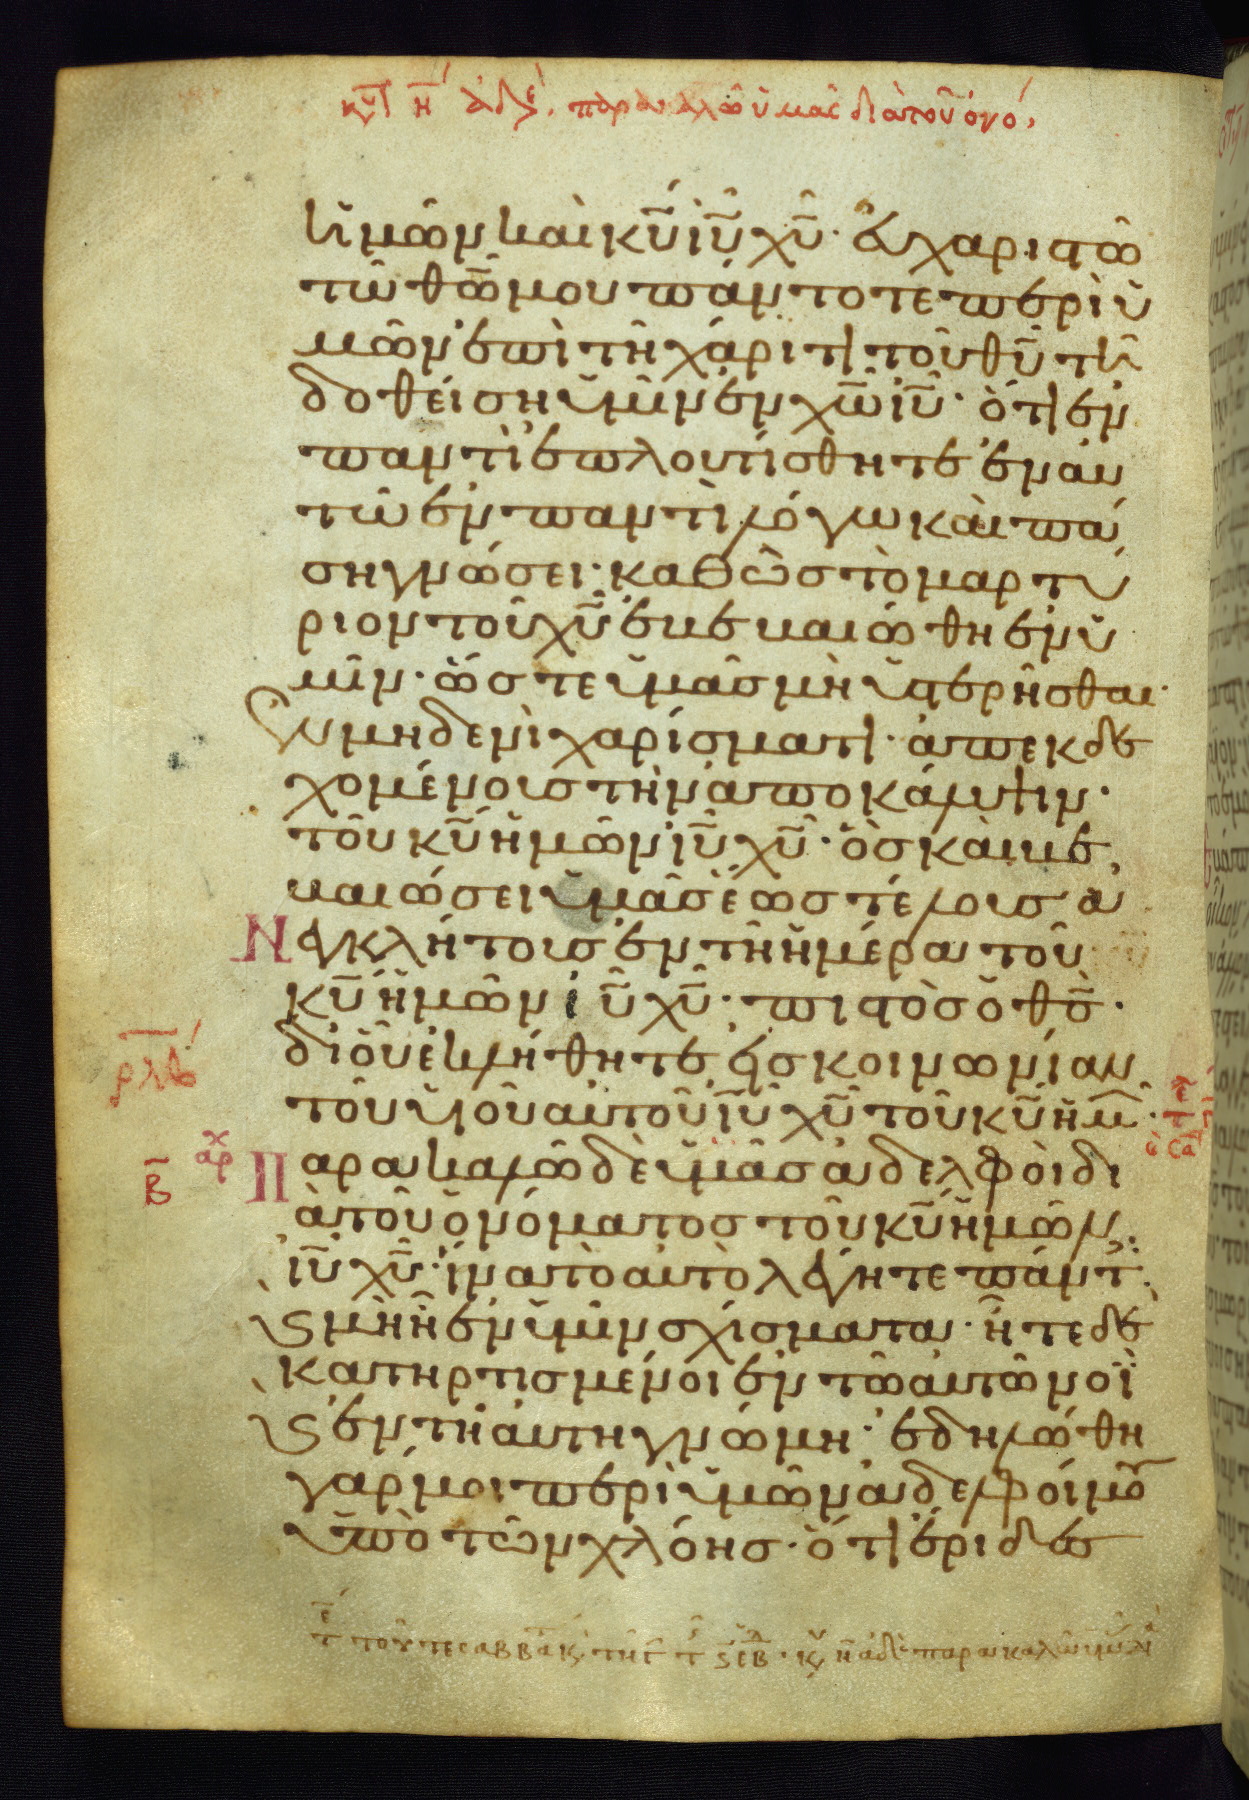 κυ η αδε, παρακαλῶ ὑμᾶς διὰ τοῦ ὀνό
ἡμῶν καὶ κ̅υ̅ ι̅υ̅ χ̅υ̅· εὐχαριστῶ
τῶ θ̅ω̅ μου πάντοτε περὶ ὑ
μῶν ἐπὶ τῆ χάριτι τοῦ θ̅υ̅ τῆ
δοθείση ὑμῖν ἐν χ̅ω̅ ι̅υ̅· ὅτι ἐν
παντὶ ἐπλουτίσθητε ἐν αὐ
τῶ ἐν παντὶ λόγω καὶ πά
ση γνώσει· καθὼς τὸ μαρτύ
ριον τοῦ χ̅υ̅ ἐβεβαιώθη ἐν ὑ
μῖν· ὥστε ὑμᾶς μὴ ὑστερῆσθαι·
ἐν μηδενὶ χαρίσματι· ἀπεκδε
χομένοις τὴν ἀποκάλυψιν·
τοῦ κ̅υ̅ ἡμῶν ι̅υ̅ χ̅υ̅· ὃς καὶ βε
βαιώσει ὑμᾶς ἕως τέλους ἀ
νεγκλήτους ἐν τῆ ἡμέρα τοῦ
κ̅υ̅ ἡμῶν ι̅υ̅ χ̅υ̅· πιστὸς ὁ θ̅ς̅·
δι οὗ ἐκλήθητε εἰς κοινωνίαν
τοῦ υἱοῦ αὐτοῦ ι̅υ̅ χ̅υ̅ τοῦ κ̅υ̅ ἡμ·
Παρακαλῶ δὲ ὑμᾶς ἀδελφοὶ δι
ὰ τοῦ ὀνόματος τοῦ κ̅υ̅ ἡμῶν
ι̅υ̅ χ̅υ̅· ἵνα τὸ αὐτὸ λέγητε πάντ
ϛ μὴ ἦ ἐν ὑμῖν σχίσματα· ἦτε δὲ
κατηρτισμένοι ἐν τῶ αὐτῶ νοῒ
ϛ ἐν τῆ αὐτῆ γνώμη· ἐδηλώθη
γάρ μοι περὶ ὑμῶν ἀδελφοί μου
ὑπὸ τῶν χλόης· ὅτι ἔριδες
ρλβ
αρχ
β̅